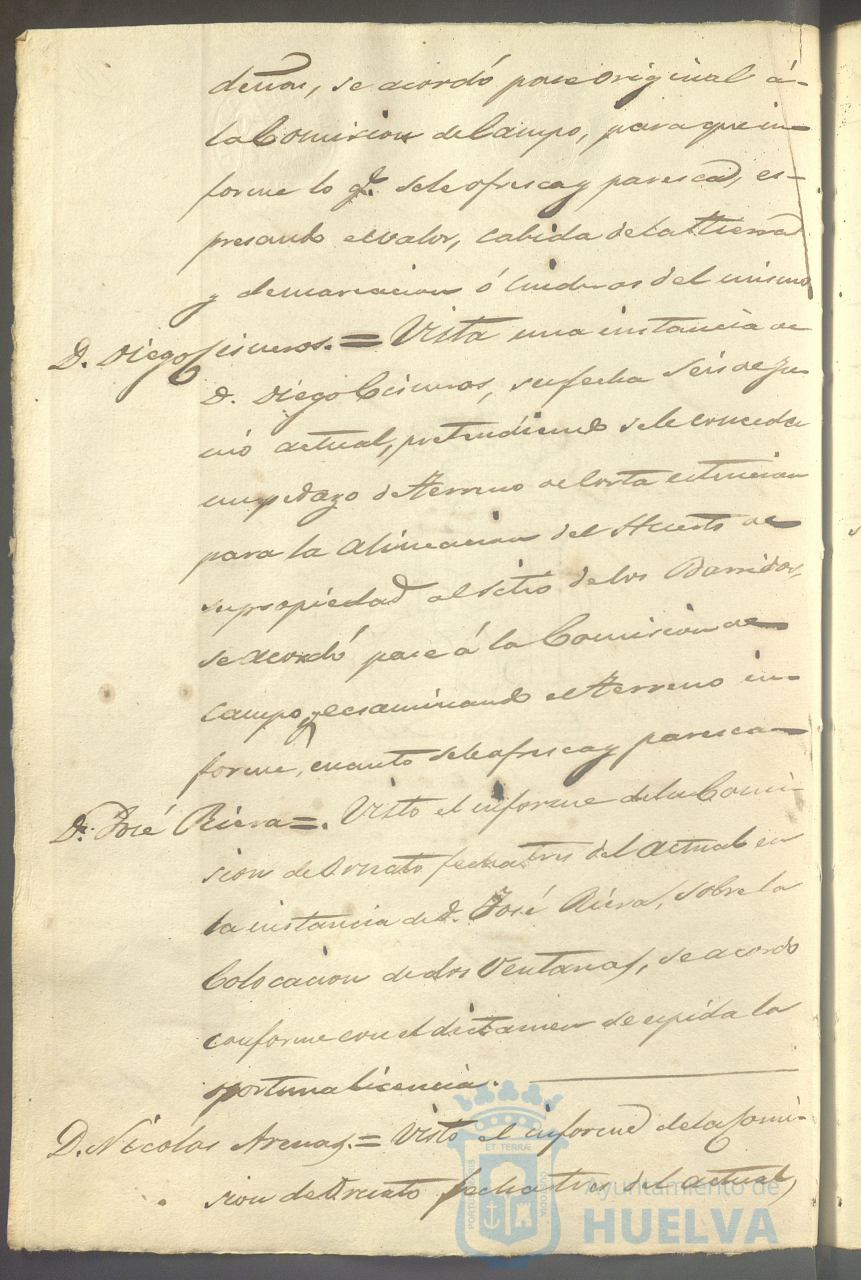 se acordó pase original á
la Comision de Campo, para que in-
forme lo q.e se le ofresca y paresca, es-
presando el valor, cabida de la tierra
y demarcacion ó linderos del mismo
D. Diego Cisneros. = Vista una instancia de
D. Diego Cisneros, su fecha seis de Ju-
nio actual, pretendiendo se le conceda
un pedazo de terreno de corta estencion
para la alineacion del Huerto de
su propiedad al sitio de los Barridos,
se acordó pase á la Comision de
Campo y ecsaminando el terreno in-
forme, cuanto se le ofresca y paresca
D. José Riera =. Visto el informe de la Comi-
sion de Ornato fecha tres del actual en
la instancia de D. José Riera, sobre la
Colocacion de dos Ventanas, se acordo
conforme con el dictamen se espida la
oportuna licencia.
D. Nicolas Arenas. = Visto el informe de la Comi-
sion de Ornato fecha tres del actual,
Ayuntamiento de
HUELVA